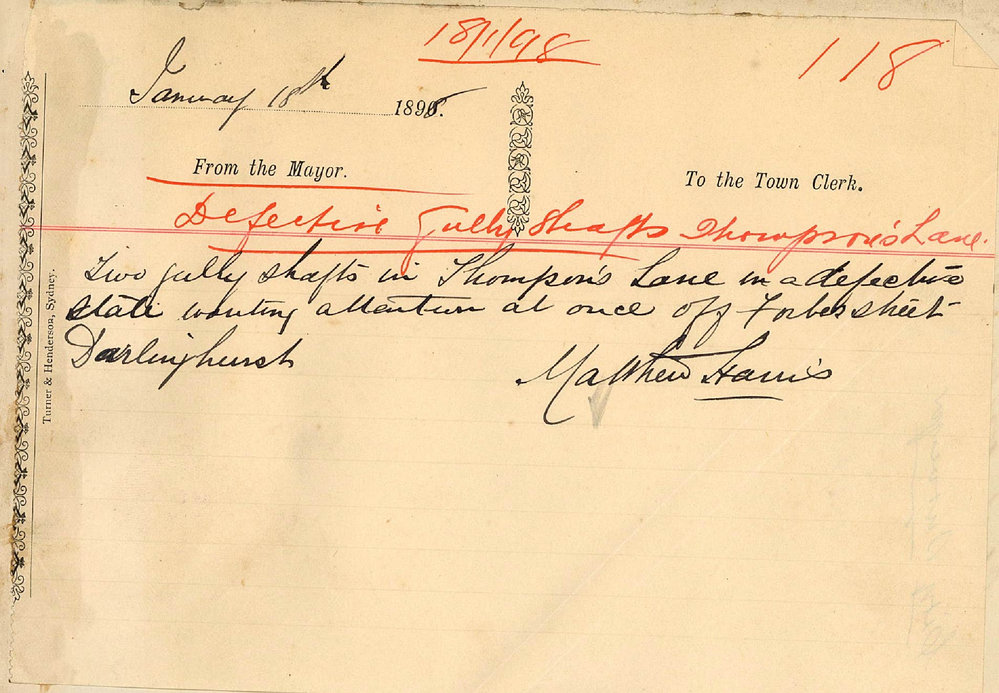 18/1/98
118
January 18th 1898.
From the Mayor.
To the Town Clerk.
Defective Gully Shafts Thompson's Lane.
Two gully shafts in Thompson's Lane in a defective
state wanting attention at once off Forbes street
Darlinghurst
Matthew Harris
Turner & Henderson, Sydney.